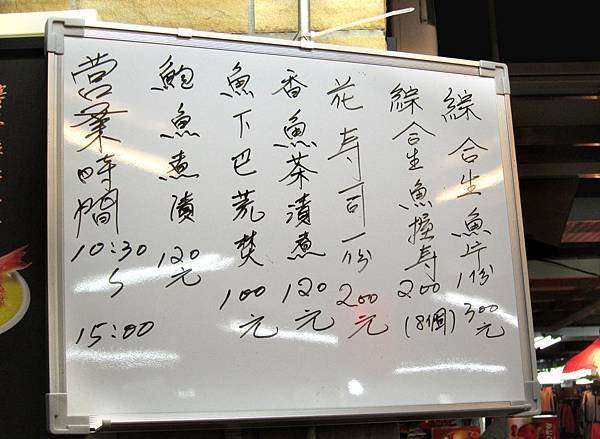 綜合生魚片1份300元
綜合生魚握寿200(8個)
花寿司一份200元
香魚茶漬煮120元
魚下巴荒焚100元
鮑魚煮漬120元
営業時間10:30~15:00